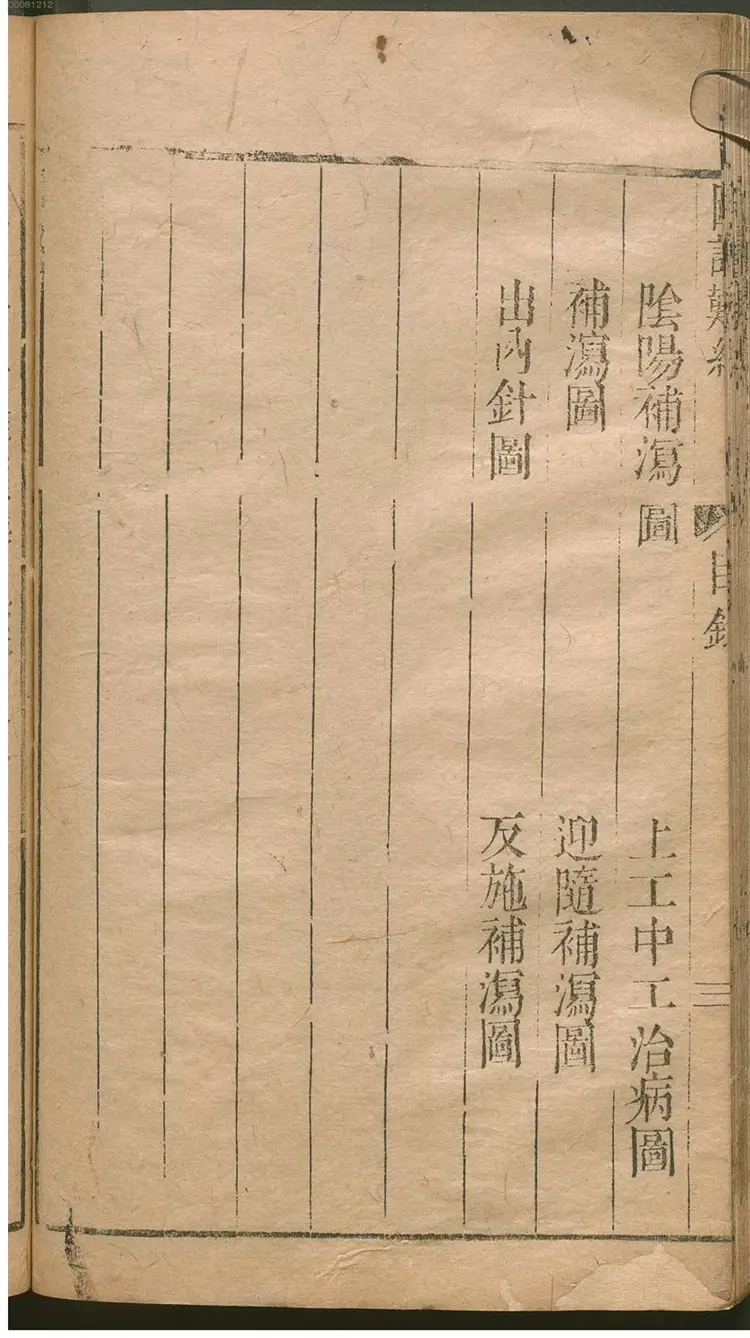 00081212
圖註難經 目錄 三
陰陽補瀉圖 上工中工治病圖
補瀉圖 迎隨補瀉圖
出內針圖 反施補瀉圖